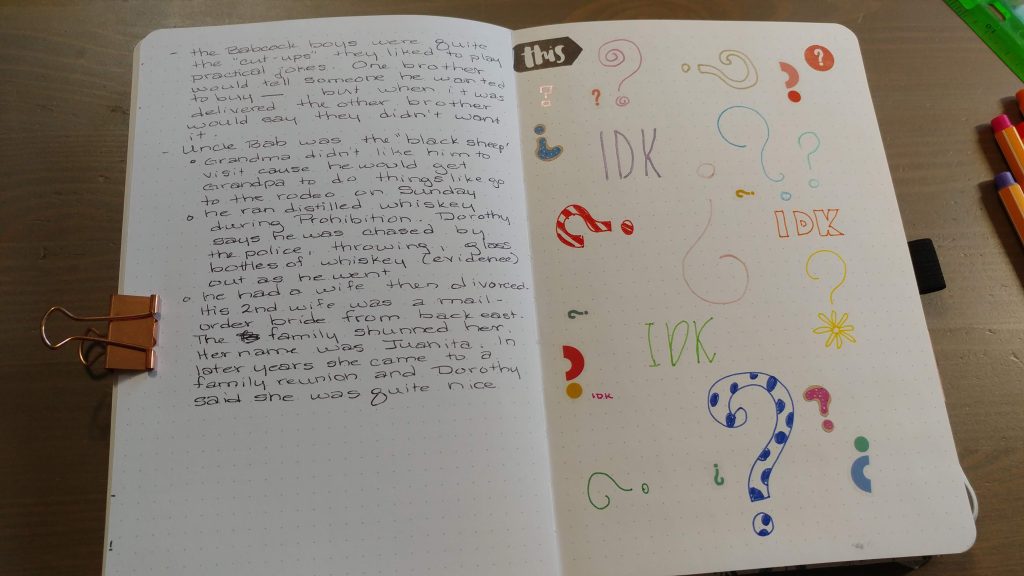 - the Babcock boys were quite
the "cut-ups" they liked to play
practical jokes. One brother
would tell someone he wanted
to buy — but when it was
delivered the other brother
would say they didn't want
it.
- Uncle Bab was the "black sheep"
• Grandma didn't like him to
visit cause he would get
Grandpa to do things like go
to the rodeo on Sunday
• he ran distilled whiskey
during Prohibition. Dorothy
says he was chased by
the police, throwing, glass
bottles of whiskey (evidence)
out as he went
• he had a wife then divorced.
His 2nd wife was a mail-
order bride from back east.
The family shunned her.
Her name was Juanita. In
later years she came to a
family reunion and Dorothy
said she was quite nice
this
? ? ?
? ?
?
IDK ? ?
?
? IDK
? ?
?
IDK
?
IDK
? ?
? ? ?